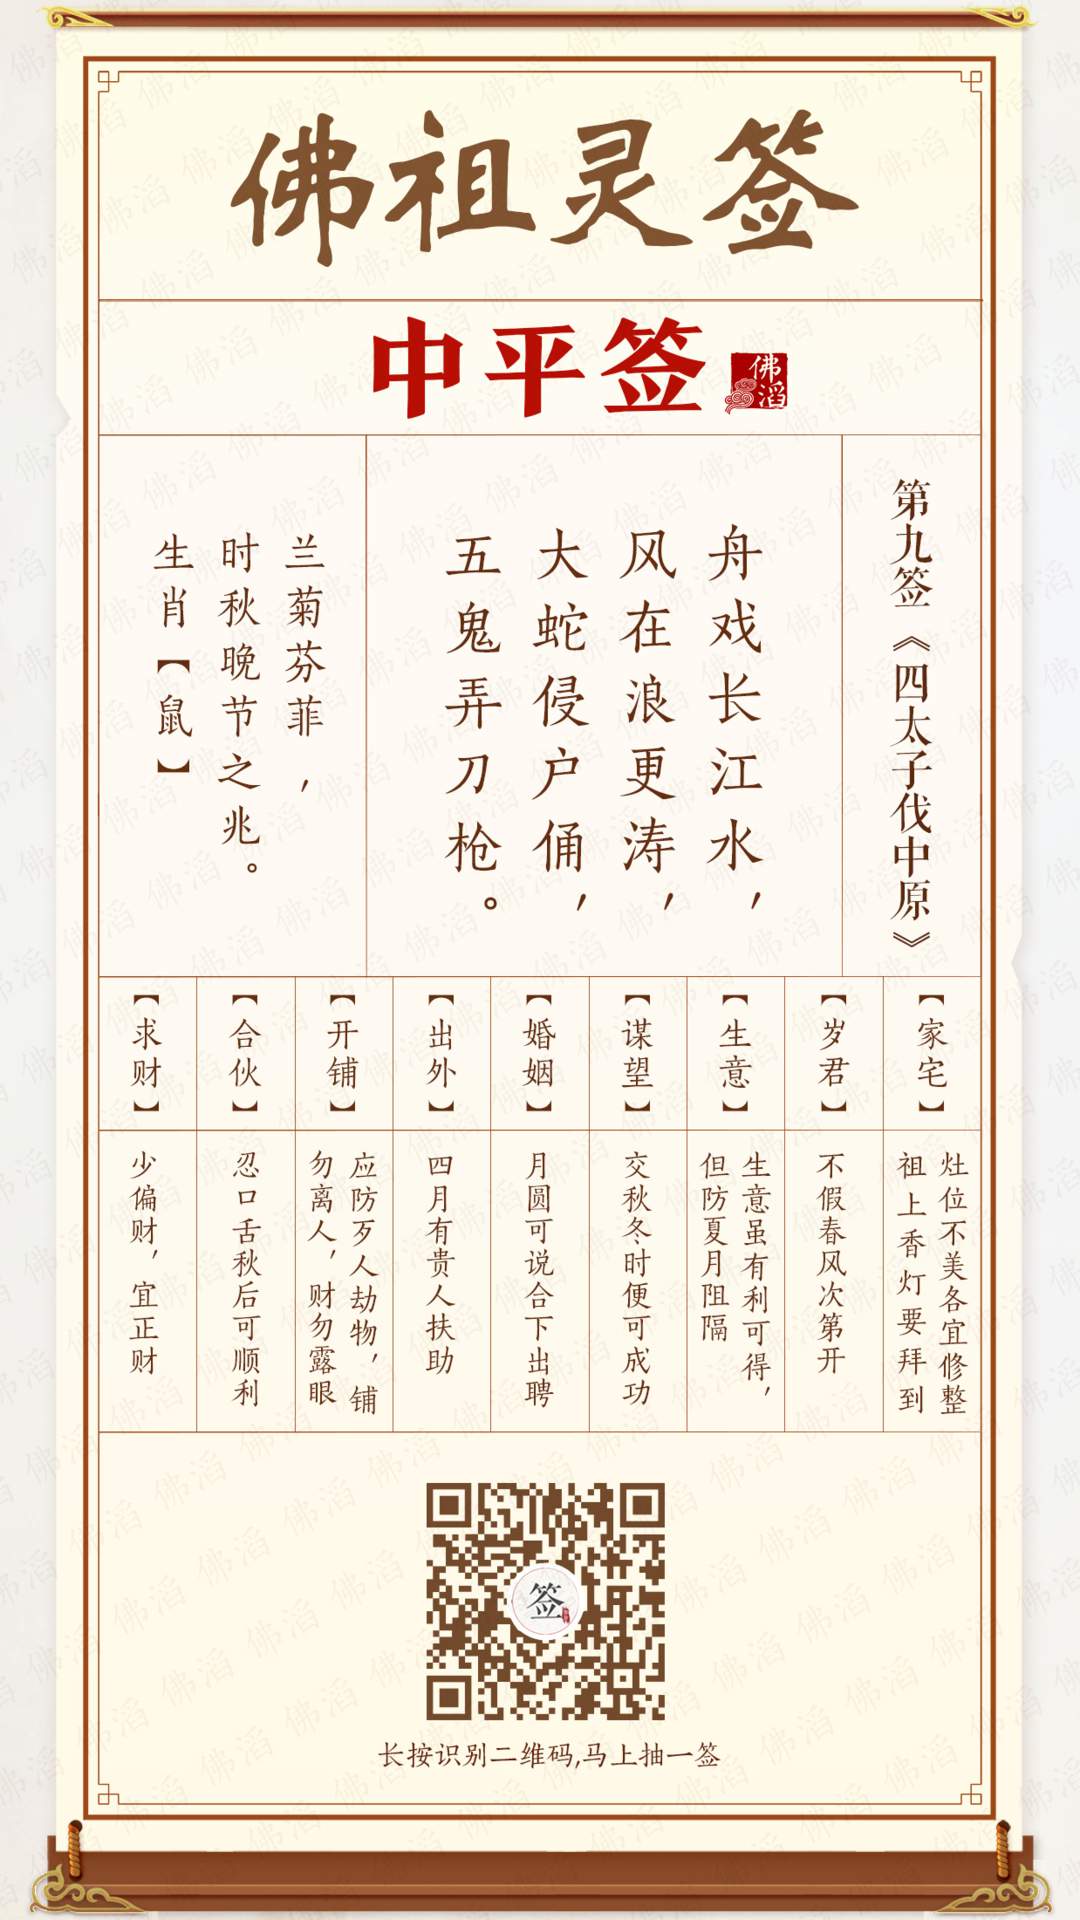 佛祖灵签
中平签
佛滔
第九签《四太子伐中原》
舟戏长江水，
风在浪更涛，
大蛇侵户俑，
五鬼弄刀枪。
兰菊芬菲，
时秋晚节之兆。
生肖【鼠】
【家宅】
灶位不美各宜修整
祖上香灯要拜到
【岁君】
不假春风次第开
【生意】
生意虽有利可得，
但防夏月阻隔
【谋望】
交秋冬时便可成功
【婚姻】
月圆可说合下出聘
【出外】
四月有贵人扶助
【开铺】
应防歹人劫物，铺
勿离人，财勿露眼
【合伙】
忍口舌秋后可顺利
【求财】
少偏财，宜正财
签
长按识别二维码,马上抽一签